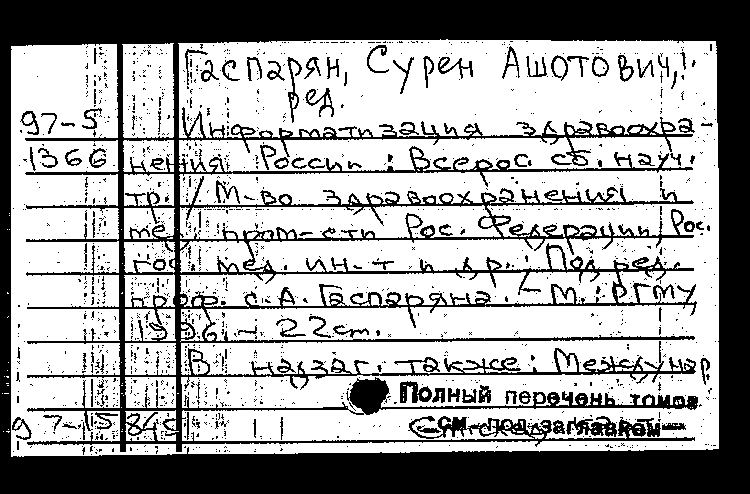 Гаспарян, Сурен Ашотович,
ред.
97-5 Информатизация здравоохра-
1366 нения России : Всерос. сб. науч.
тр. / М-во здравоохранения и
мед. пром-сти Рос. Федерации, Рос.
гос. мед. ин-т и др. ; Под ред.
проф. С.А. Гаспаряна. - М. : РГМУ,
1996. - 22 см.
В надзаг. также: Междунар.
Полный перечень томов
97-15 см. под заглавием